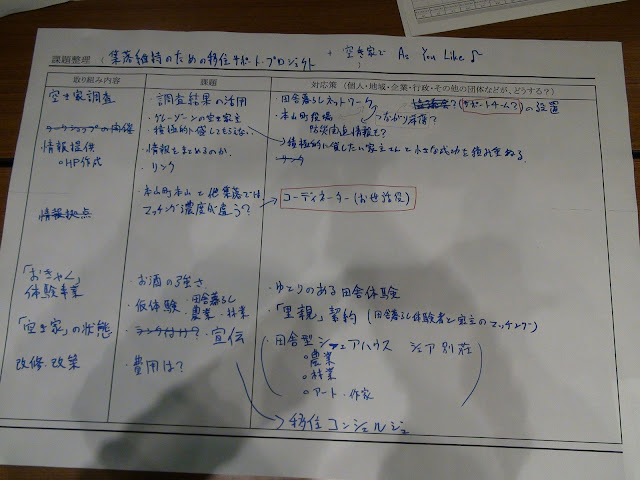 課題整理 (集落維持のための移住サポートプロジェクト + 空き家で As You Like♪
取り組み内容 課題 対応策(個人・地域・企業・行政・その他の団体などが、どうする?)
空き家調査 ・調査結果の活用 ・田舎暮らしネットワーク 協議会?(サポートチーム?)の設置
ワークショップの開催 ・グレーゾーンの空き家主 ・本山町役場 つながり深消?
積極的に貸してもらえない
情報提供 ・情報をまとめるのか ・積極的に貸したい家主さんと小さな成功を積み重ねる
○HP作成 リンク ・リンク
情報拠点 ・本山町本山と他集落では
マッチング濃度が違う? コーディネーター(お世話役)
「おきゃく」 ・お酒の強さ ・ゆとりのある田舎体験
体験事業 ・仮体験・田舎暮らし
・農業・林業 ・「里親」契約(田舎暮らし体験者と家主のマッチング)
「空き家」の状態 ・ランク付け?・宣伝 ・田舎型シェアハウス シェア別荘
○農業
改修・改築 ・費用は? ○林業
○アート・作家
移住コンシェルジュ